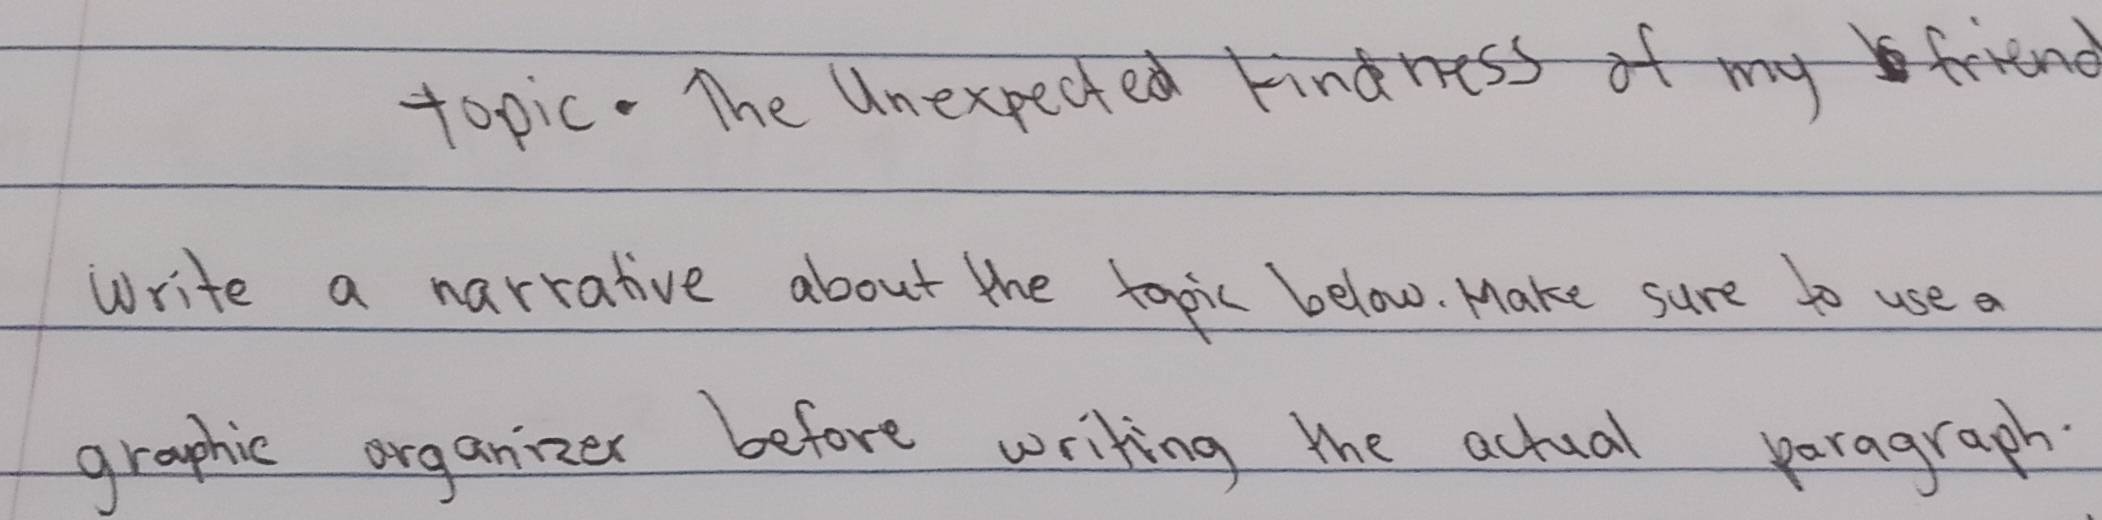 topic. The Unexpected kindness of my friend
write a narrative about the topic below. Make sure to use a
graphic organizer before writing the actual paragraph.